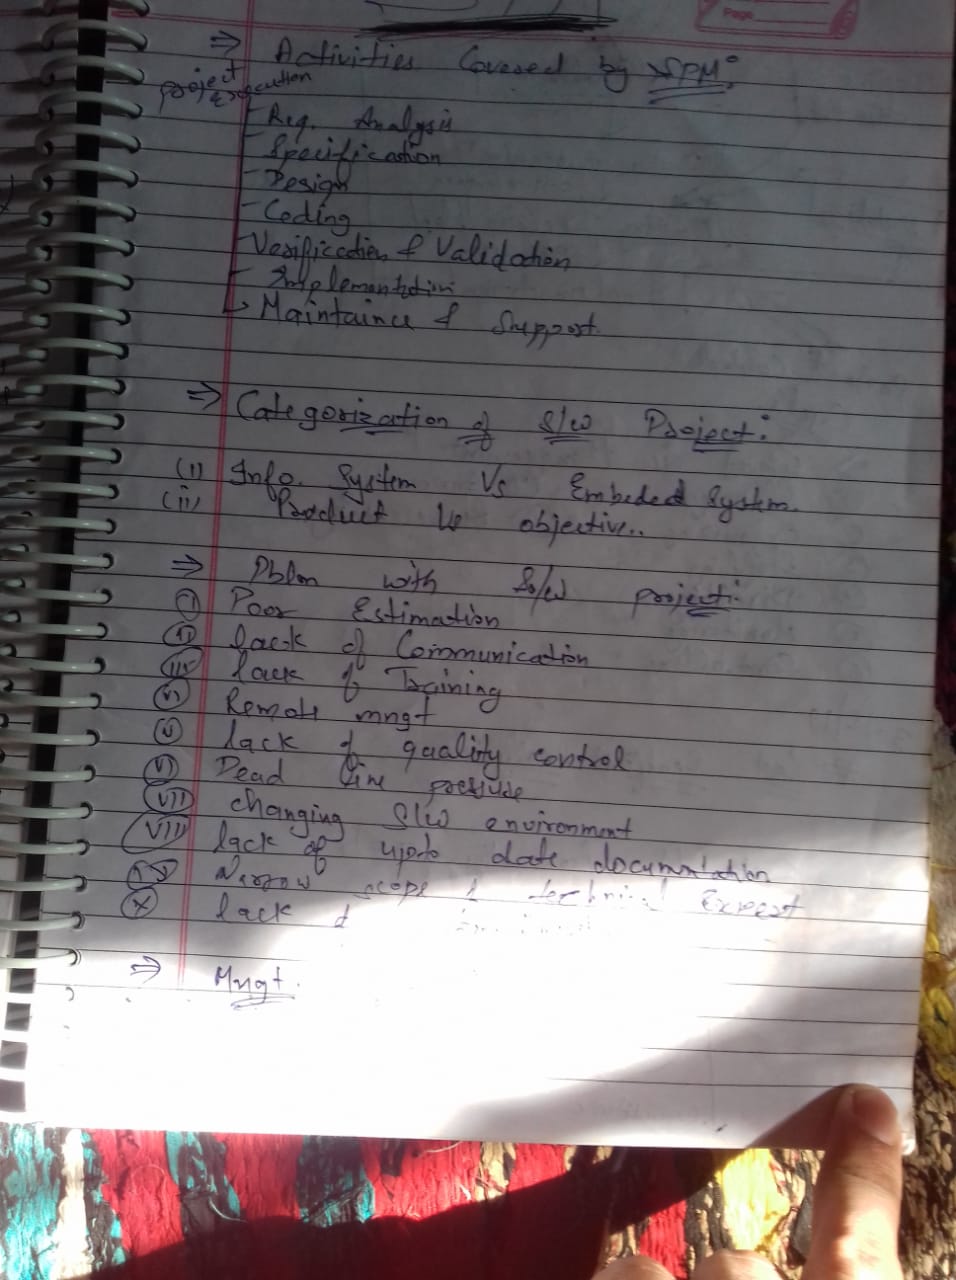 Page
⇒ Activities Covered by SPM:
project
Execution
Req. Analysis
Specification
Design
Coding
Verification & Validation
Implementation
Maintaince & Support.
⇒ Categorization of S/W Project:
(i) Info. System Vs Embeded System.
(ii) Product Vs objective..
⇒ Pblm with So/w project:
(i) Poor Estimation
(ii) lack of Communication
(iii) lack of Training
(vi) Remote mngt
(v) lack of quality control
(vi) Dead line pressure
(vii) changing S/W environment
(viii) lack of upto date documntation
(ix) Narrow scope & technical Expert
(x) lack of
⇒ Mngt.